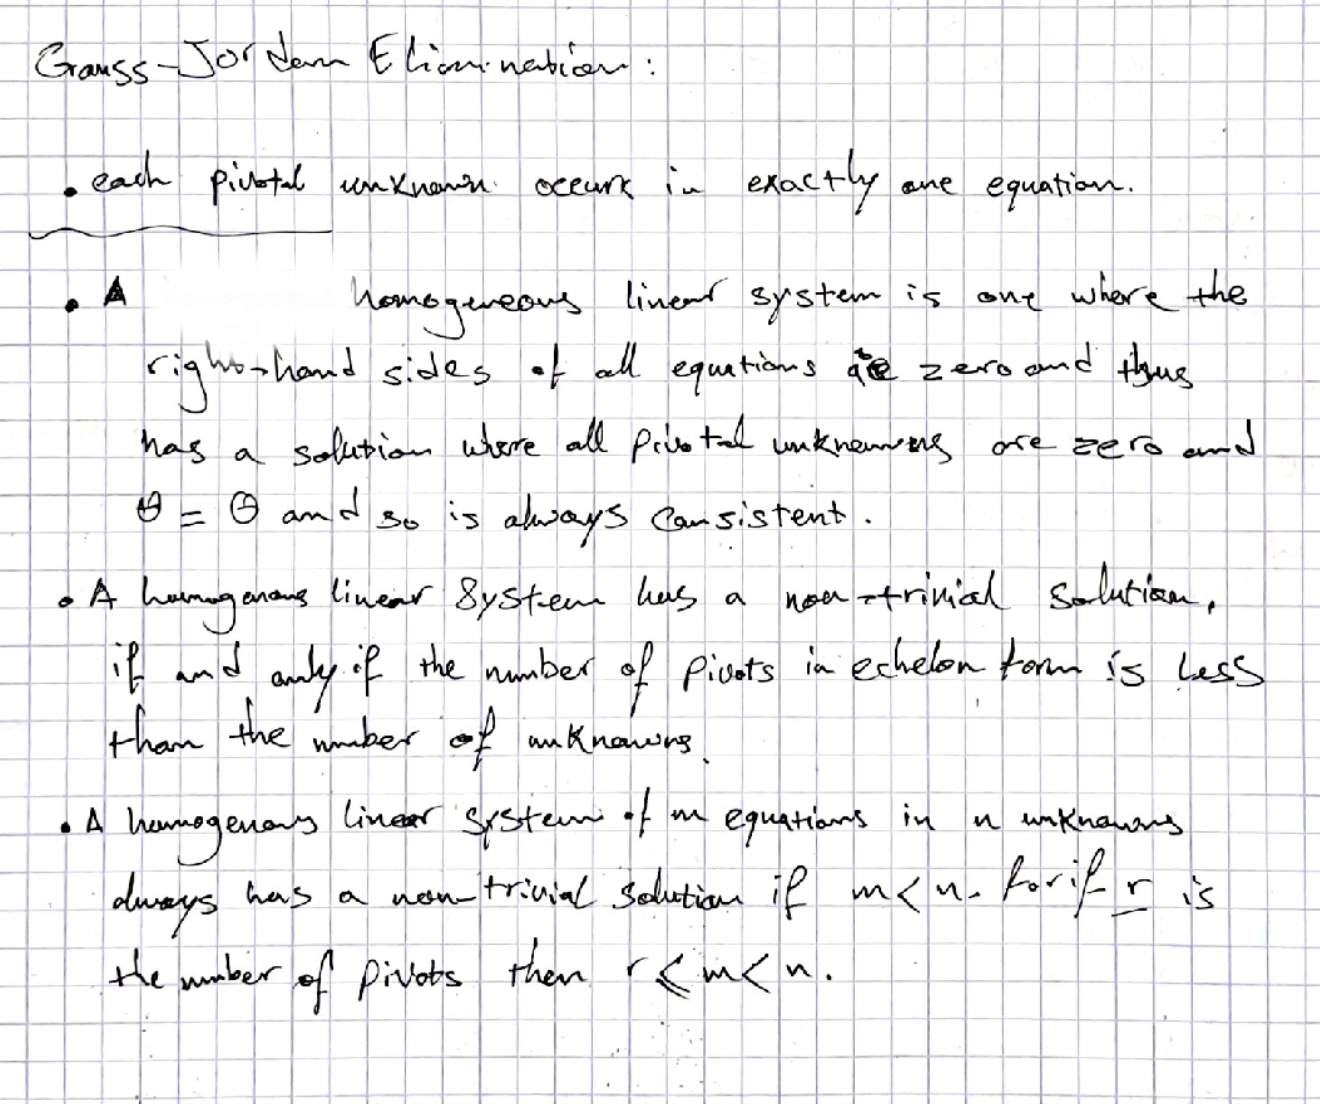 Gauss-Jordan Elimination:
• each pivotal unknown occurs in exactly one equation.
• A homogeneous linear system is one where the
right-hand sides of all equations are zero and thus
has a solution where all pivotal unknowns are zero and
θ = θ and so is always consistent.
• A homogenous linear System has a non-trivial solution,
if and only if the number of pivots in echelon form is less
than the number of unknowns.
• A homogenous linear system of m equations in n unknowns
always has a non-trivial solution if m < n. For if r is
the number of pivots then r ⩽ m < n.